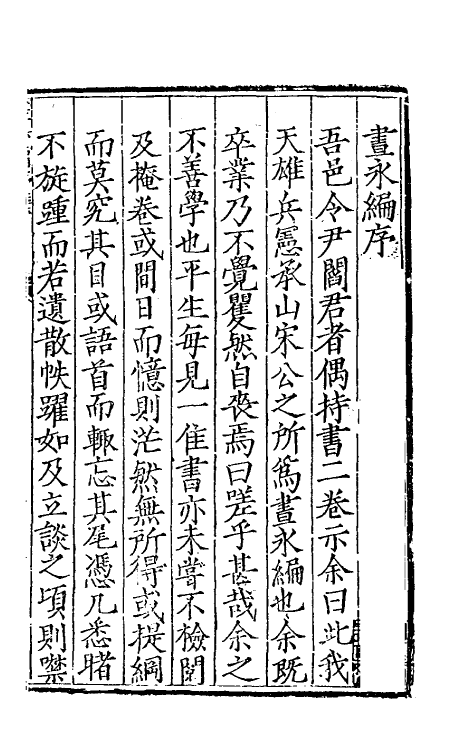 晝永編序
吾邑令尹閻君者偶持書二卷示余曰此我
天雄兵憲承山宋公之所爲晝永編也余既
卒業乃不覺瞿然自喪焉曰嗟乎甚哉余之
不善學也平生每見一隹書亦未嘗不檢閱
及掩卷或間日而憶則茫然無所得或提綱
而莫究其目或語首而輙忘其尾憑几悉睹
不旋踵而若遺散帙躍如及立談之頃則噤